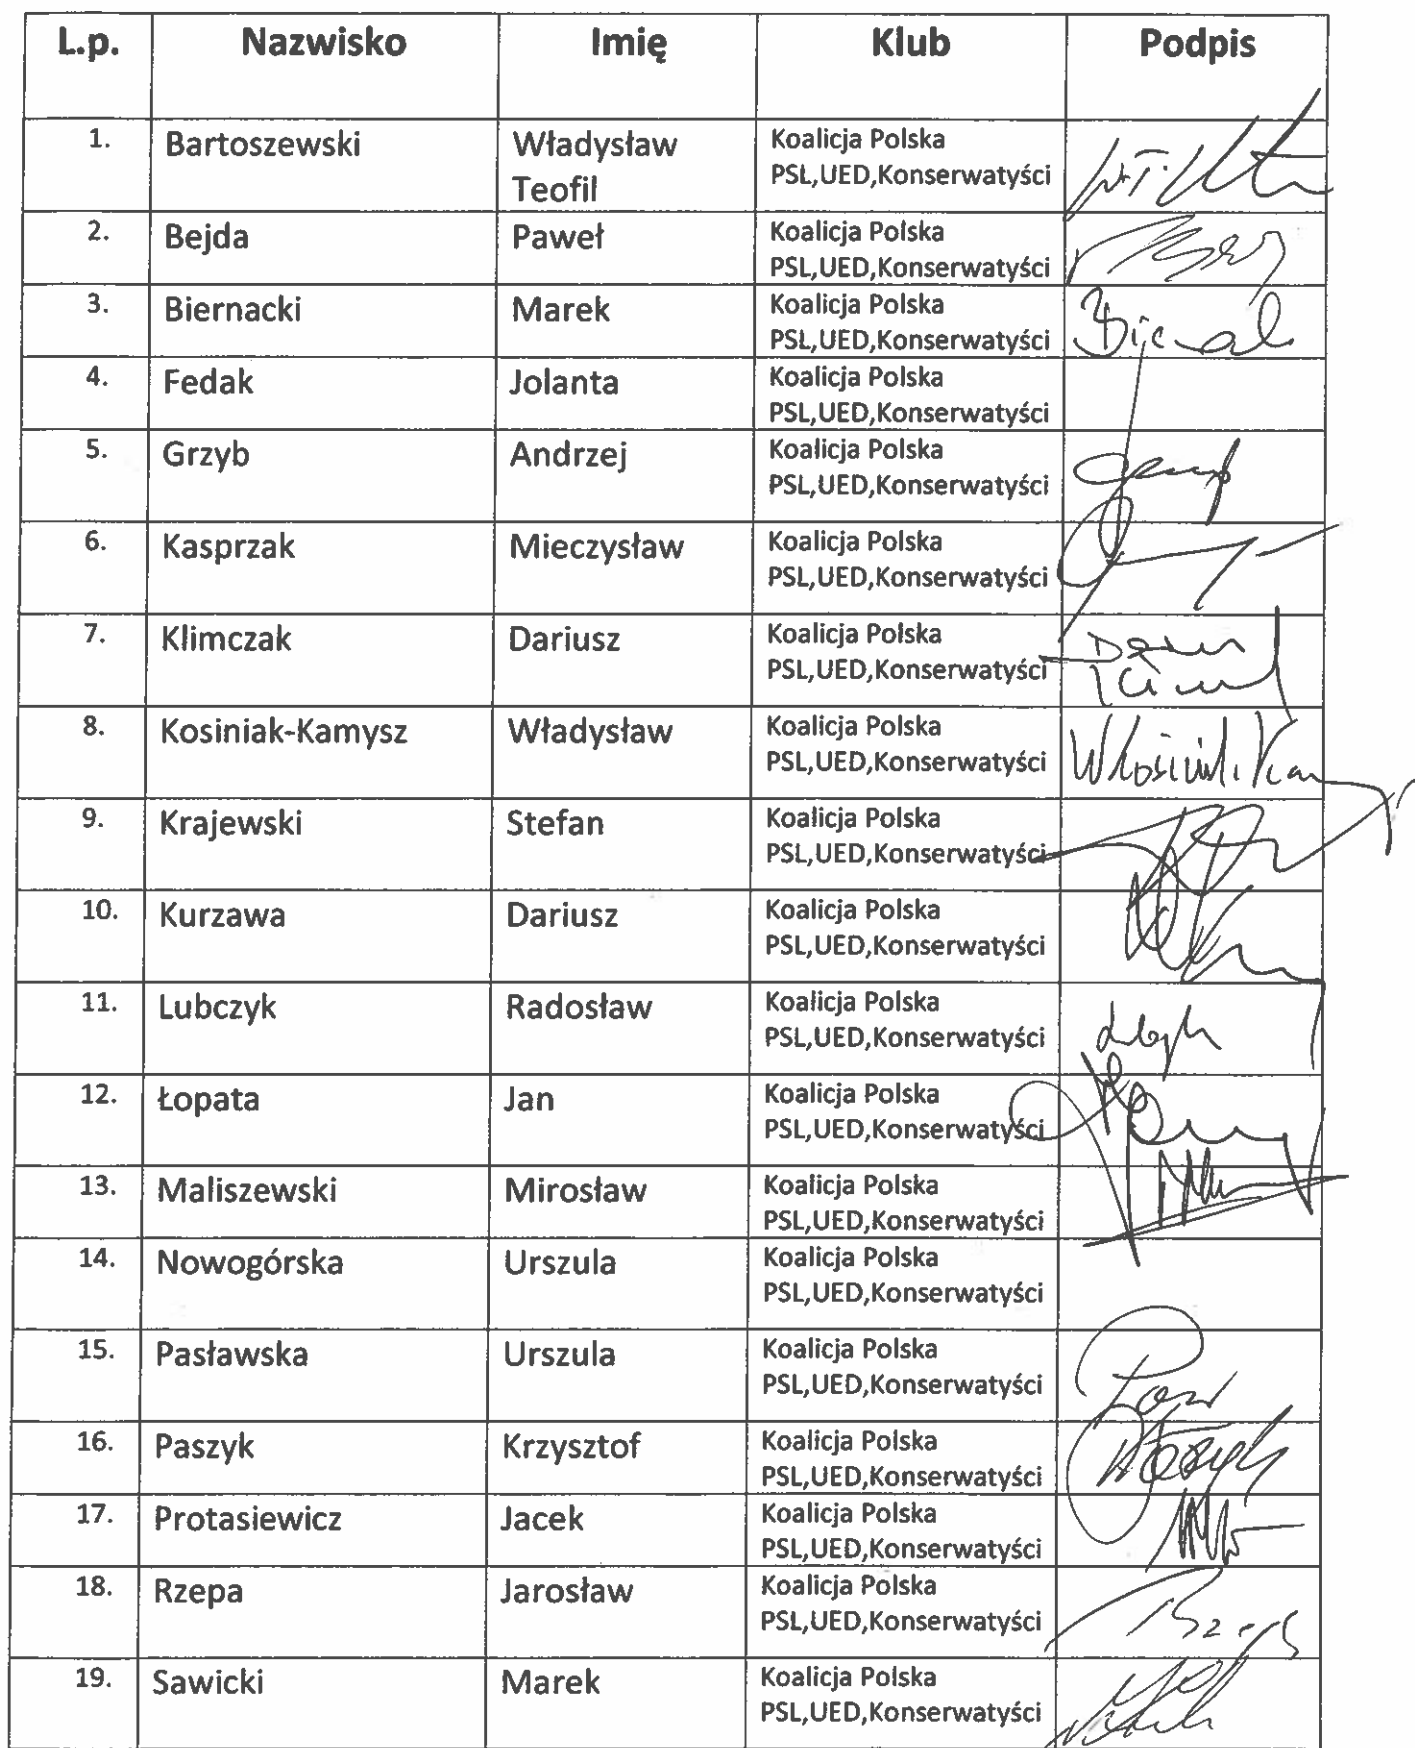 L.p. Nazwisko Imię Klub Podpis
1. Bartoszewski Władysław Koalicja Polska
Teofil PSL,UED,Konserwatyści
2. Bejda Paweł Koalicja Polska
PSL,UED,Konserwatyści
3. Biernacki Marek Koalicja Polska
PSL,UED,Konserwatyści
4. Fedak Jolanta Koalicja Polska
PSL,UED,Konserwatyści
5. Grzyb Andrzej Koalicja Polska
PSL,UED,Konserwatyści
6. Kasprzak Mieczysław Koalicja Polska
PSL,UED,Konserwatyści
7. Klimczak Dariusz Koalicja Polska
PSL,UED,Konserwatyści
8. Kosiniak-Kamysz Władysław Koalicja Polska
PSL,UED,Konserwatyści
9. Krajewski Stefan Koalicja Polska
PSL,UED,Konserwatyści
10. Kurzawa Dariusz Koalicja Polska
PSL,UED,Konserwatyści
11. Lubczyk Radosław Koalicja Polska
PSL,UED,Konserwatyści
12. Łopata Jan Koalicja Polska
PSL,UED,Konserwatyści
13. Maliszewski Mirosław Koalicja Polska
PSL,UED,Konserwatyści
14. Nowogórska Urszula Koalicja Polska
PSL,UED,Konserwatyści
15. Pasławska Urszula Koalicja Polska
PSL,UED,Konserwatyści
16. Paszyk Krzysztof Koalicja Polska
PSL,UED,Konserwatyści
17. Protasiewicz Jacek Koalicja Polska
PSL,UED,Konserwatyści
18. Rzepa Jarosław Koalicja Polska
PSL,UED,Konserwatyści
19. Sawicki Marek Koalicja Polska
PSL,UED,Konserwatyści